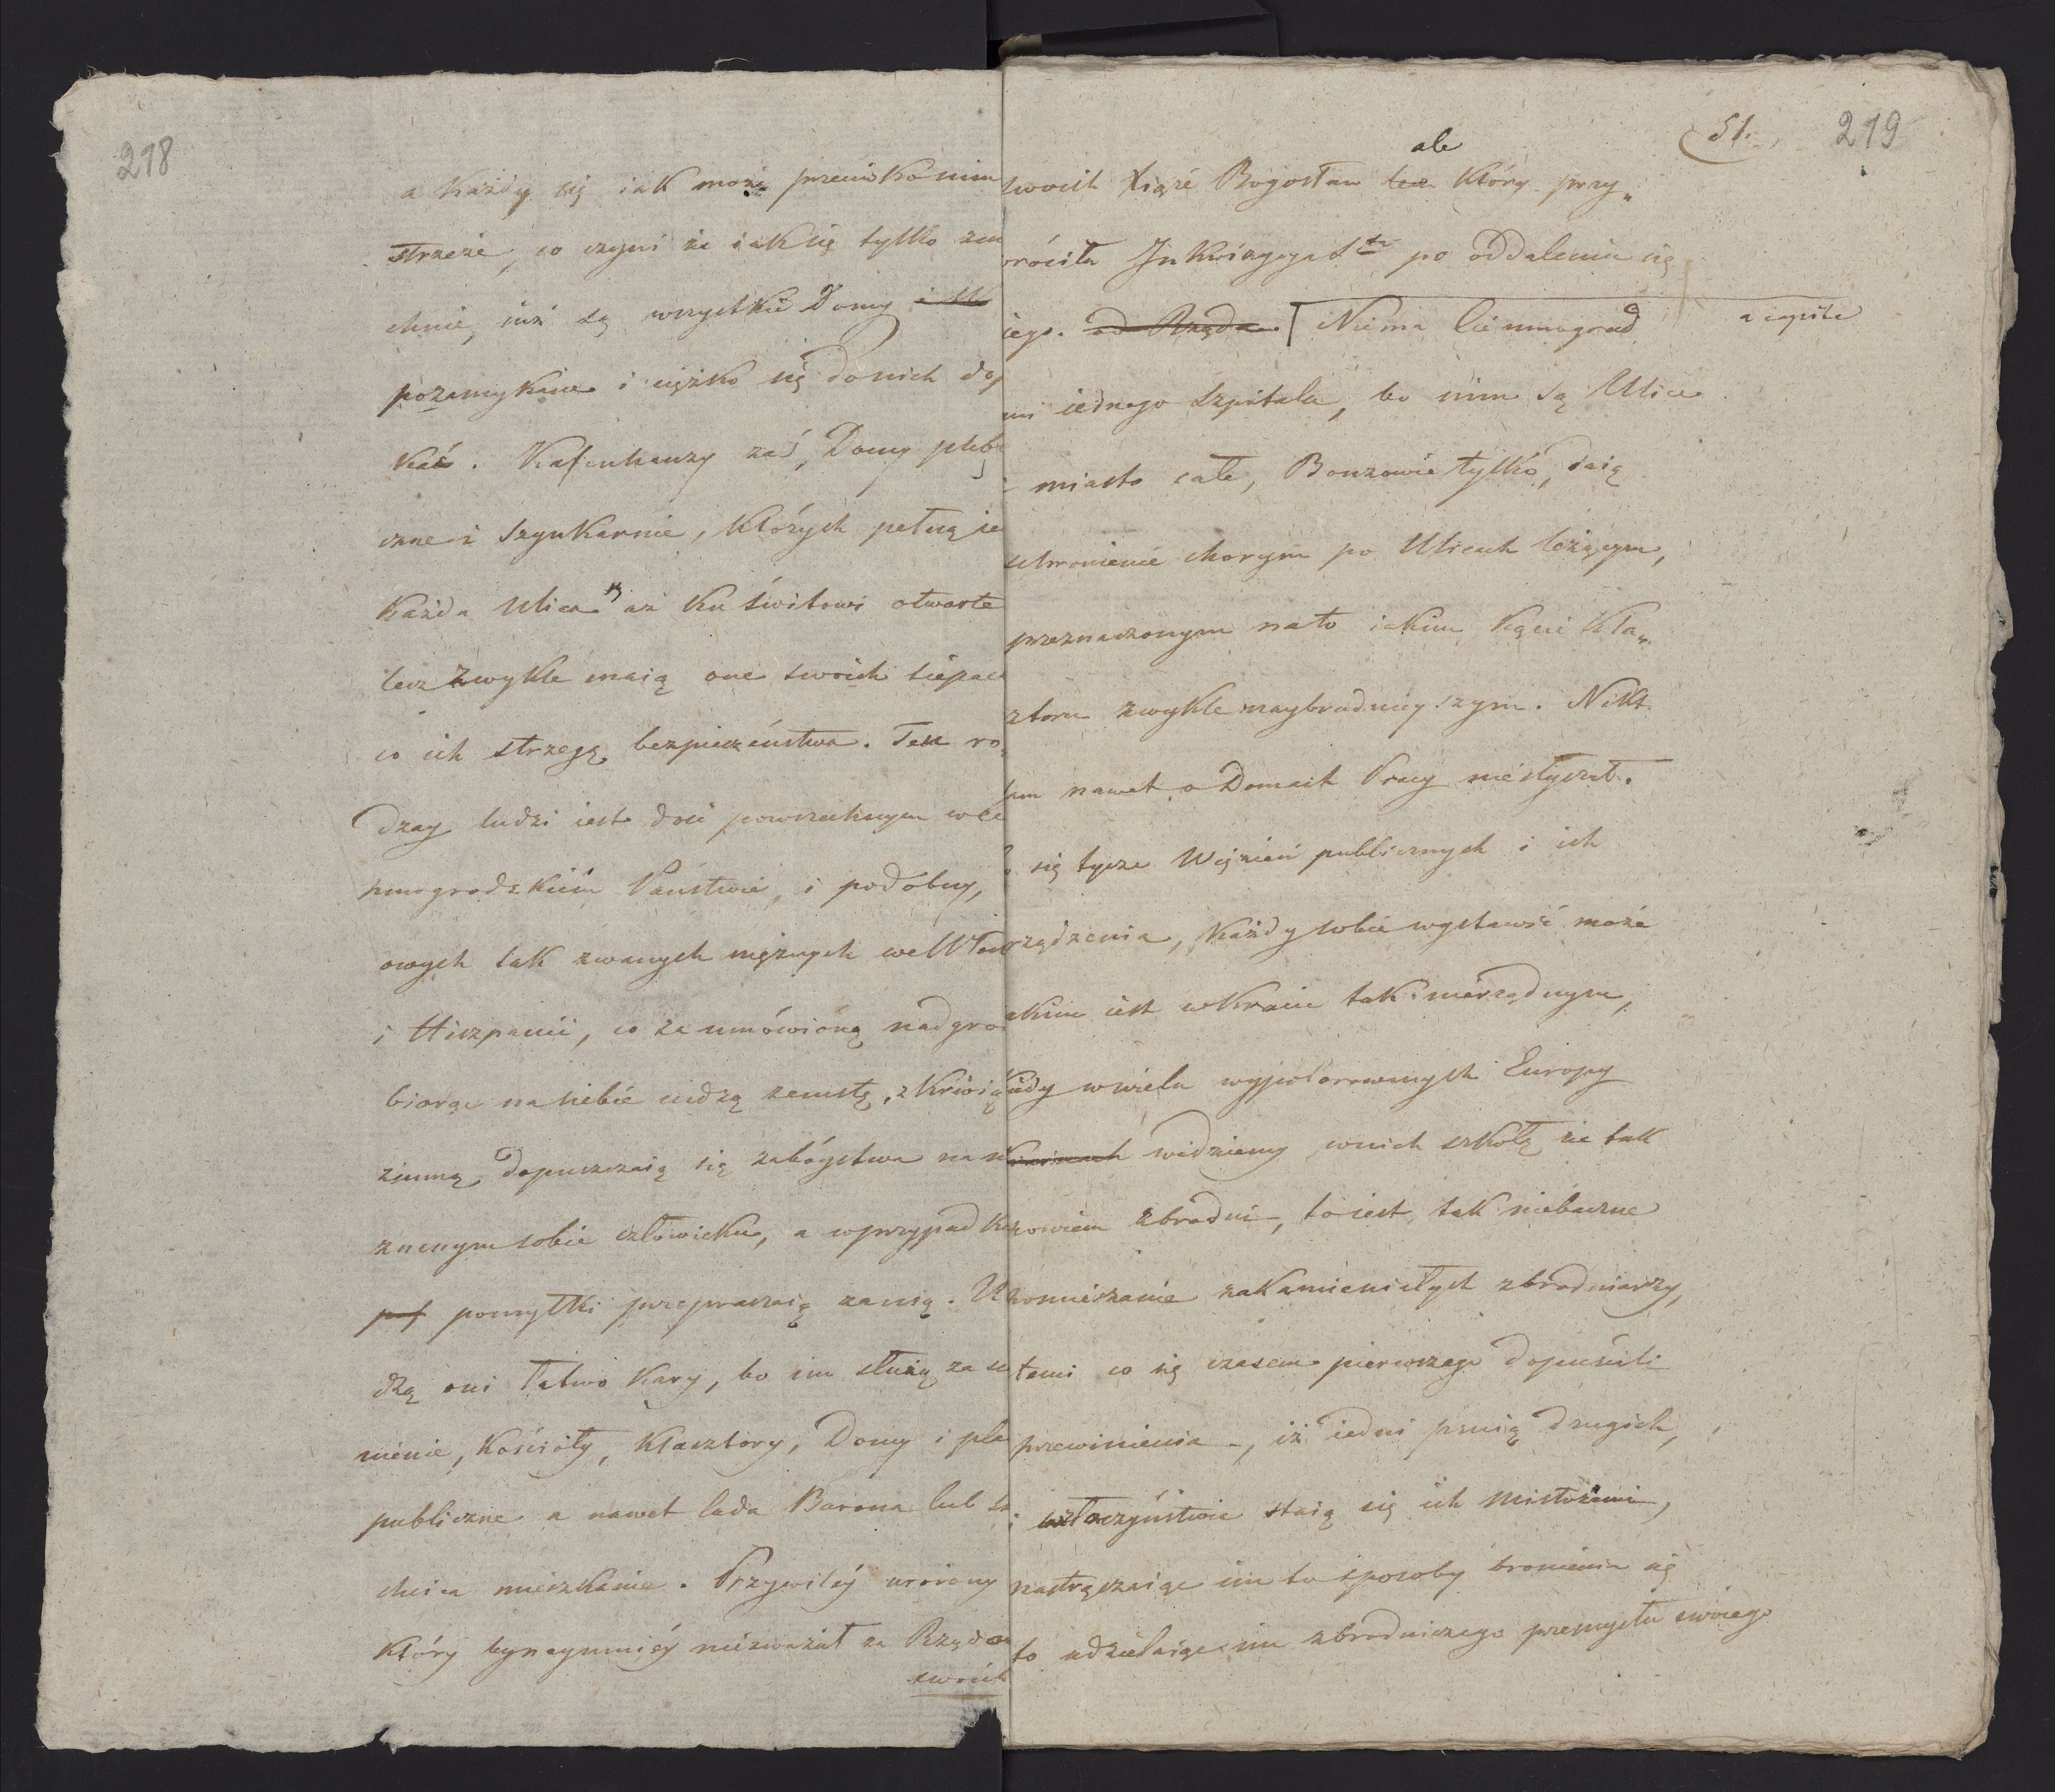 218
a każdy się iak może przeciwko nim
strzeże, co czyni że iak się tylko zm
chnie, iuż są wszystkie Domy
pozamykane i ciężko się do nich do,
kać. Kafenhauzy zaś, Domy pleb
czne i Szynkarnie, których pełną ie
każda Ulica aż ku świtowi otwarte
lecz zwykle maią one swoich siepac
co ich strzegą bezpieczeństwa. Ten ro,
dzay ludzi iest dość powszechnym w Ci
mnogrodzkiém Państwie, i podobny,
owych tak zwanych mężnych we Wło
i Hiszpanii, co za umówioną nadgro
biorąc na siebie cudzą zemstę, z krwią
zimną, dopuszczaią się zabóystwa na n
znanym sobie człowieku, a w przypadk
pomyłki przepraszaią za nią. U
dzą oni łatwo kary, bo im służą za sc
nienie, kościoły, klasztory, Domy i pla
publiczne a nawet lada Barona lub sz
chcica mieszkanie. Przywiléy urojony
który bynaymniéy nieuważał za Rządów
swoich
51.
219
ale
swoich Xiąże Bogosław lecz który przy„
wróciła Inkwizycya Sta po oddaleniu się
iego. od Rządu. Niema Ciemnogród
a capite
ani iednego Szpitala, bo nim są Ulice
i miasto całe, Bonzowie tylko, daią
schronienie chorym po Ulicach leżącym,
przeznaczonym na to iakim kącie kla„
sztoru zwykle naybrudnieyszym. Nikt
tam nawet o Domach Pracy niesłyszał.
Co się tycze Więzień publicznych i ich
urządzenia, każdy sobie wystawić może
iakim iest w kraiu tak nierządnym,
kiedy w wielu wypolorowanych Europy
kraiach widziemy w nich szkołę że tak
powiem zbrodni, to iest tak niebaczne
pomieszanie zakamieniałych zbrodniarzy,
z temi co się czasem pierwszego dopuścili
przewinienia, iż iedni psuią drugich,
i w złoczyństwie staią się ich Mistrzami,
nastręczaiąc im to sposoby bronienia się
to udzielaiąc im zbrodniczego przemysłu swoiego